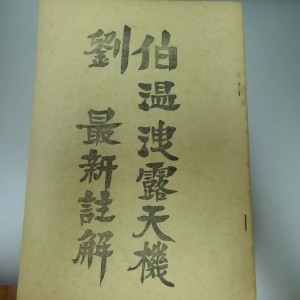 劉伯温洩露天機
最新註解